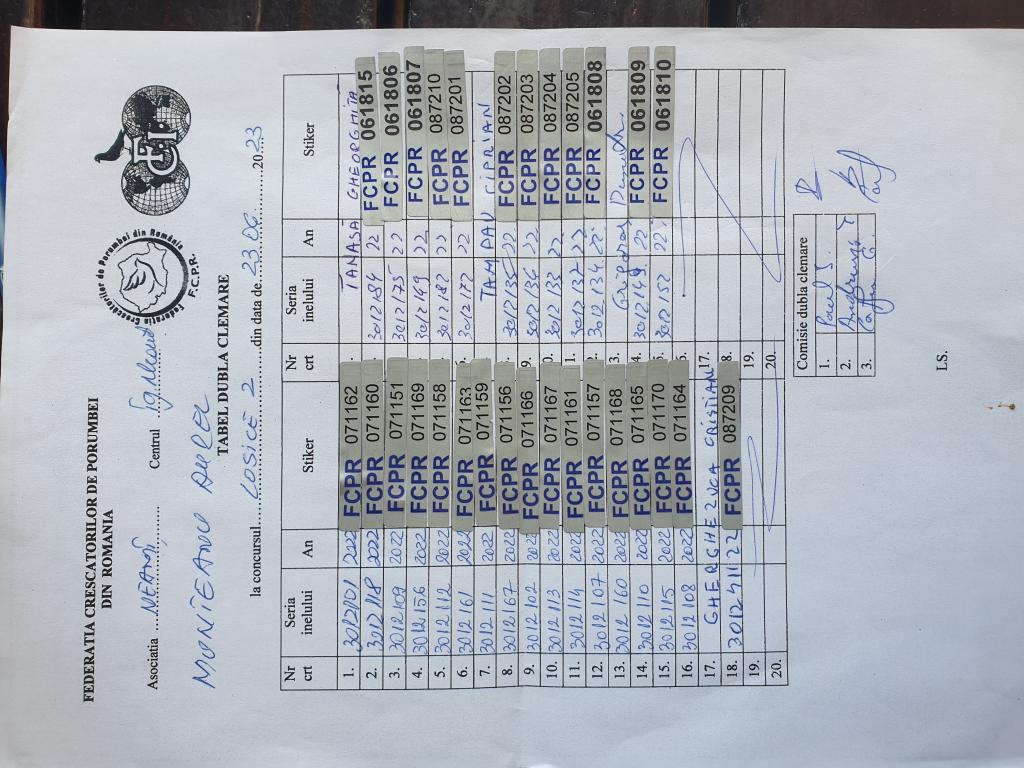 FEDERATIA CRESCATORILOR DE PORUMBEI
DIN ROMANIA
Federatia Crescatorilor de Porumbei din România
F.C.P.R.
FCI
Asociatia ...NEAMȚ............ Centrul ....
MONTEANU AUREL
TABEL DUBLA CLEMARE
la concursul.....COSICE 2.......din data de.23.06.......2023
Nr crt Seria inelului An Stiker Nr crt Seria inelului An Stiker
1. 3012101 2022 FCPR 071162 TANASĂ GHEORGHITA
2. 3012118 2022 FCPR 071160 3012184 22 FCPR 061815
3. 3012109 2022 FCPR 071151 3012175 22 FCPR 061806
4. 3012156 2022 FCPR 071169 3012149 22 FCPR 061807
5. 3012112 2022 FCPR 071158 3012182 22 FCPR 087210
6. 3012161 2022 FCPR 071163 3012177 22 FCPR 087201
7. 3012111 2022 FCPR 071159 TAMPAU CIPRIAN
8. 3012167 2022 FCPR 071156 3012135 22 FCPR 087202
9. 3012102 2022 FCPR 071166 9. 3012136 22 FCPR 087203
10. 3012113 2022 FCPR 071167 0. 3012133 22 FCPR 087204
11. 3012114 2022 FCPR 071161 1. 3012137 22 FCPR 087205
12. 3012107 2022 FCPR 071157 2. 3012134 22 FCPR 061808
13. 3012160 2022 FCPR 071168 3.
14. 3012110 2022 FCPR 071165 4. 3012149 22 FCPR 061809
15. 3012115 2022 FCPR 071170 5. 3012152 22 FCPR 061810
16. 3012108 2022 FCPR 071164 6.
17. GHERGHELUCA CRISTIAN 17.
18. 3012541 22 FCPR 087209 8.
19. 19.
20. 20.
Comisie dubla clemare
1.
2.
3.
LS.